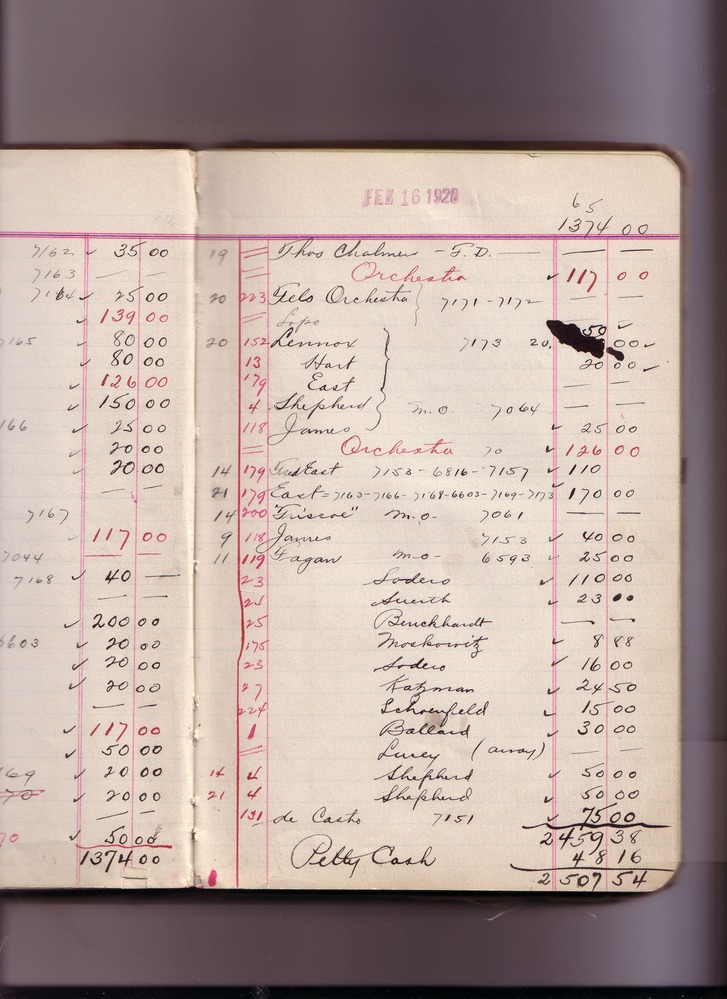 7162 ✓ 35 00
7163 — —
7164 ✓ 25 00
✓ 139 00
7165 ✓ 80 00
✓ 80 00
✓ 126 00
✓ 150 00
166 ✓ 25 00
✓ 20 00
✓ 20 00
— —
7167
117 00
7044 — —
7168 ✓ 40 —
— —
✓ 200 00
6603 ✓ 20 00
✓ 20 00
✓ 20 00
— —
✓ 117 00
✓ 50 00
169 ✓ 20 00
70 ✓ 20 00
—
70 ✓ 50 00
1374 00
FEB 16 1920
65
1374 00
19 = Thos Chalmers - F.D. — — —
= Orchestra ✓ 117 00
20 223 Felo Orchestra } 7171-7172 — —
= Lopo 50 ✓
20 152 Lennox 7173 20. 00 ✓
13 Hart 20 00 ✓
179 East
4 Shepherd } m.o. 7064 — —
118 James ✓ 25 00
= Orchestra 70 ✓ 126 00
14 179 East 7153-6816-7157 ✓ 110
21 179 East = 7163-7166-7168-6603-7169-7173 170 00
14 200 "Friscoe" m.o- 7061 — —
9 118 James 7153 ✓ 40 00
11 119 Fagan m.o- 6593 ✓ 25 00
23 Sodero ✓ 110 00
✓ 23 00
25 Burckhardt — —
175 Moskowitz ✓ 8 88
23 Sodero ✓ 16 00
27 Katzman ✓ 24 50
224 Schoenfeld ✓ 15 00
1 Ballard ✓ 30 00
= (away) — —
14 4 Shepherd ✓ 50 00
21 4 Shepherd ✓ 50 00
131 de Casto 7151 ✓ 75 00
2 459 38
Petty Cash 48 16
2 507 54